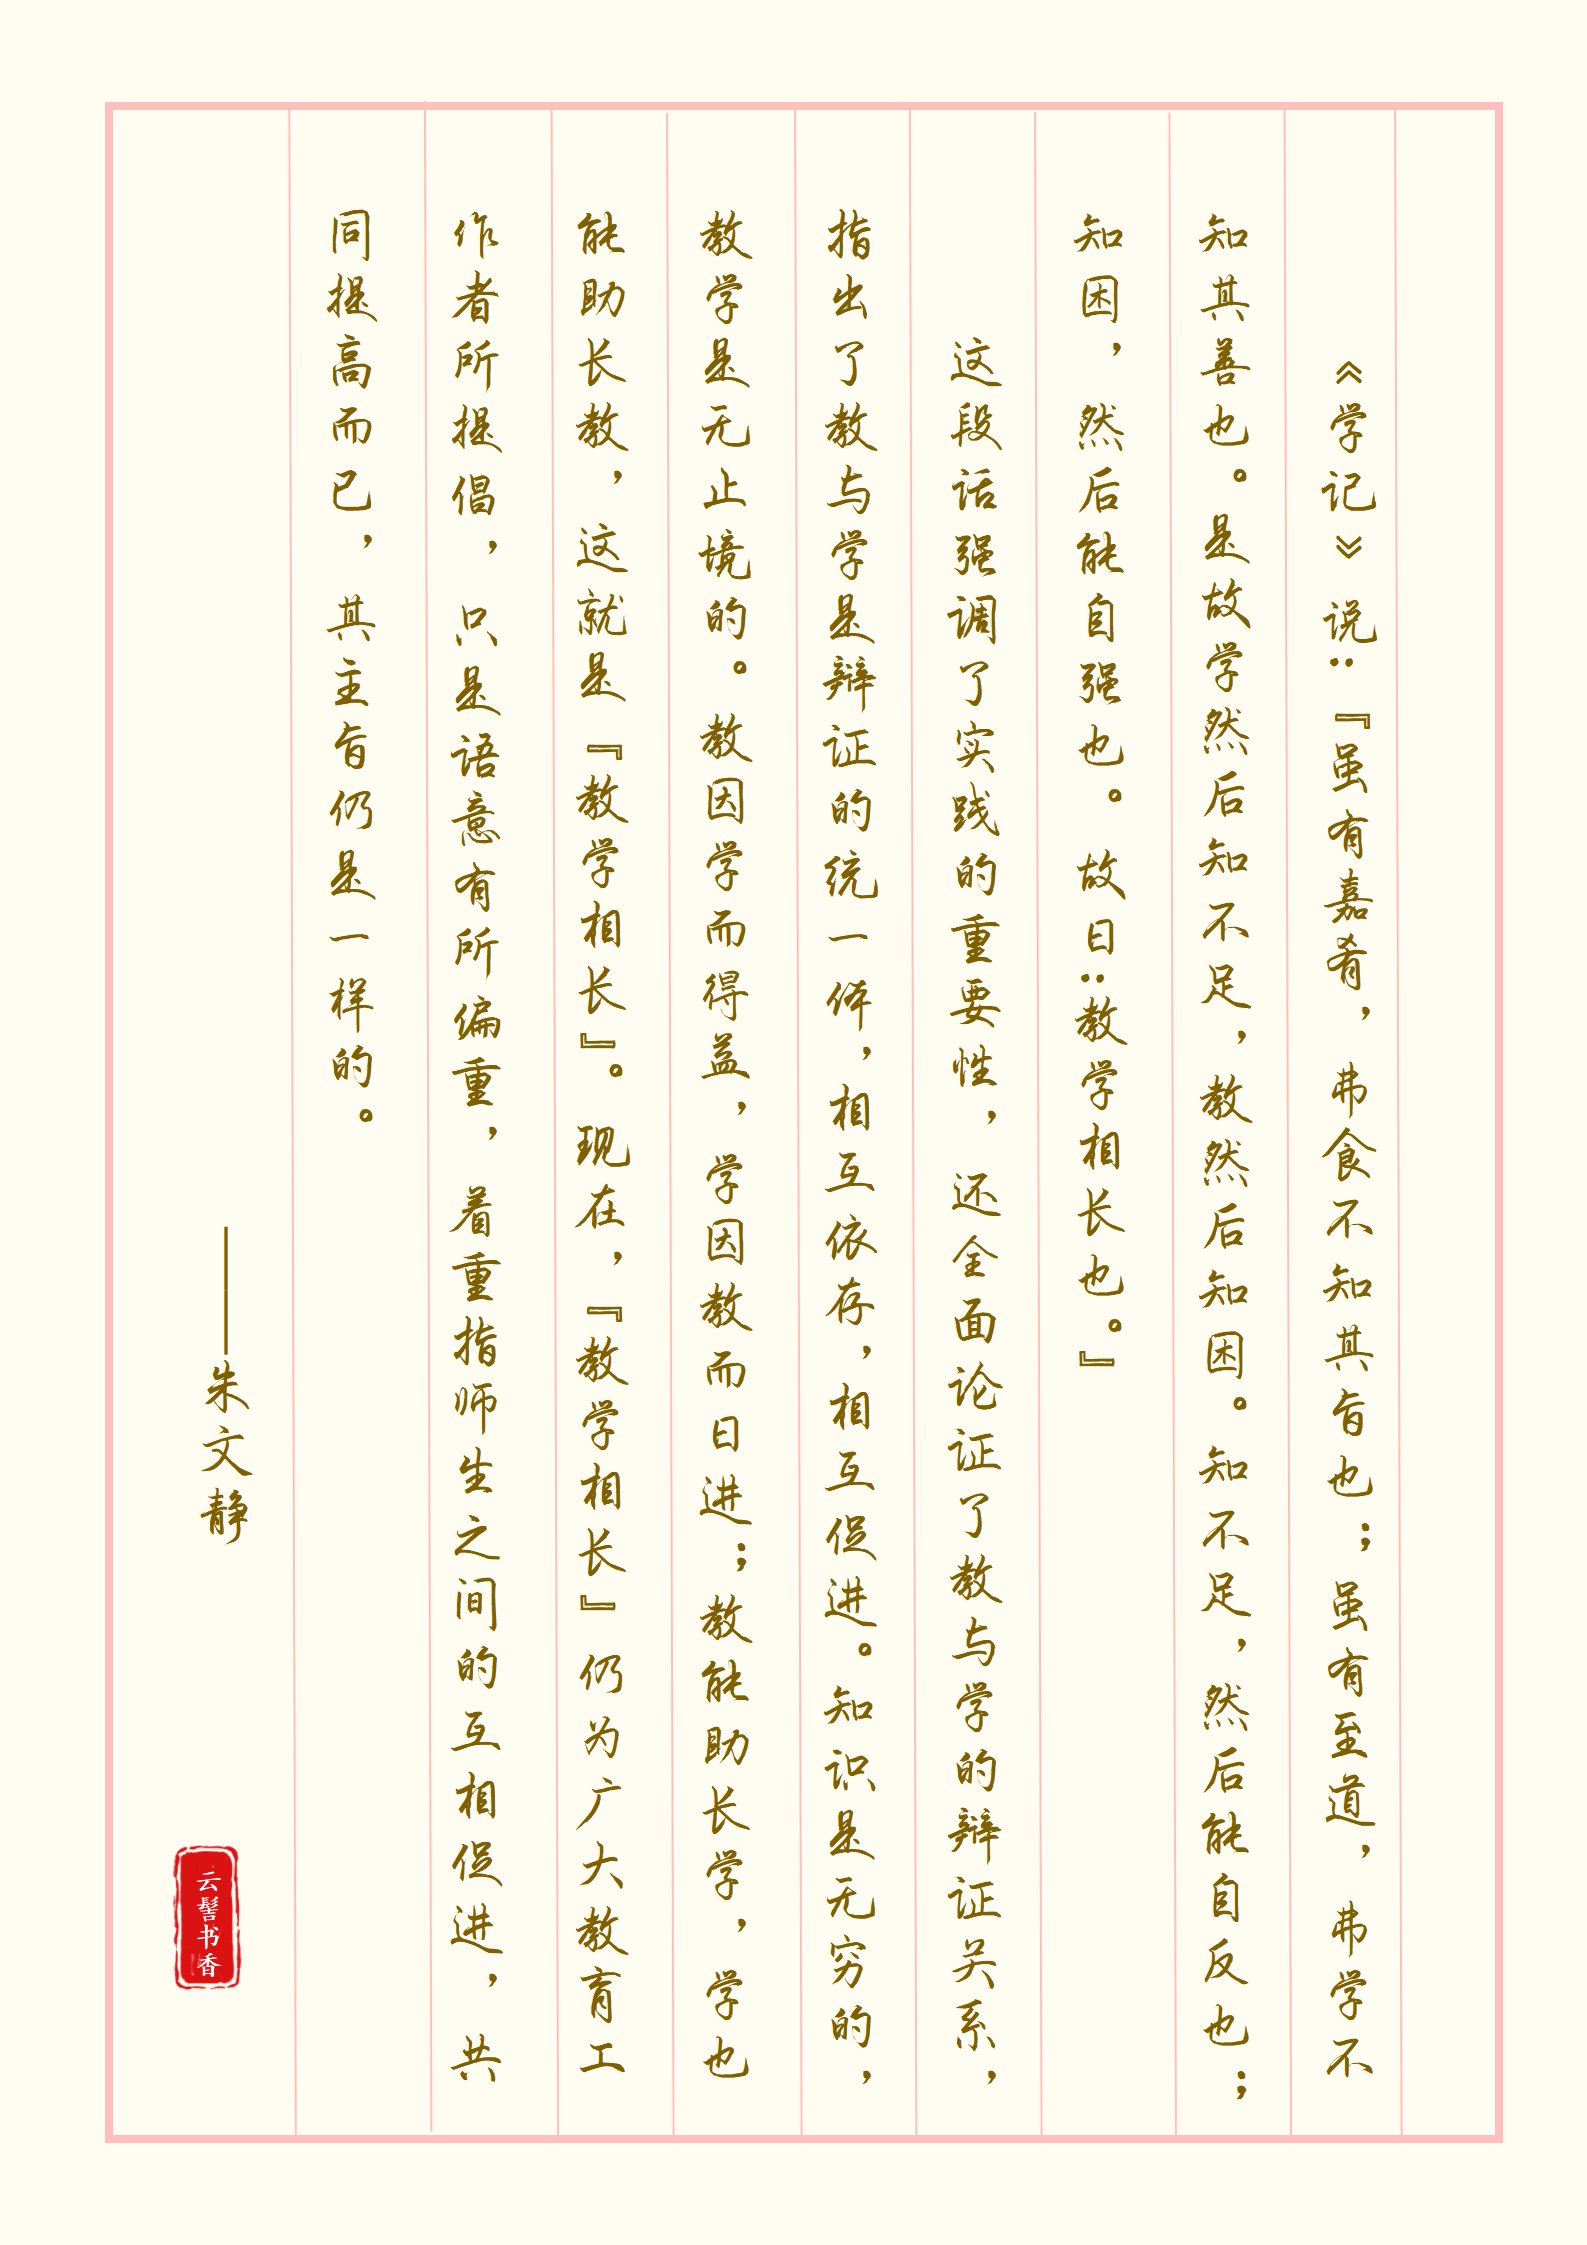 《学记》说：『虽有嘉肴，弗食不知其旨也；虽有至道，弗学不
知其善也。是故学然后知不足，教然后知困。知不足，然后能自反也；
知困，然后能自强也。故曰：教学相长也。』
这段话强调了实践的重要性，还全面论证了教与学的辩证关系，
指出了教与学是辩证的统一体，相互依存，相互促进。知识是无穷的，
教学是无止境的。教因学而得益，学因教而日进；教能助长学，学也
能助长教，这就是『教学相长』。现在，『教学相长』仍为广大教育工
作者所提倡，只是语意有所偏重，着重指师生之间的互相促进，共
同提高而已，其主旨仍是一样的。
——朱文静
云髻书香